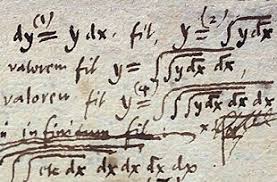 dy (1)= y dx. fit, y (2)= ∫y dx
valorem fit y = ∫∫y dx dx,
valorem fit y (4)= ∫∫∫y dx dx dx
in infinitum fit
∫∫ etc dx dx dx dx